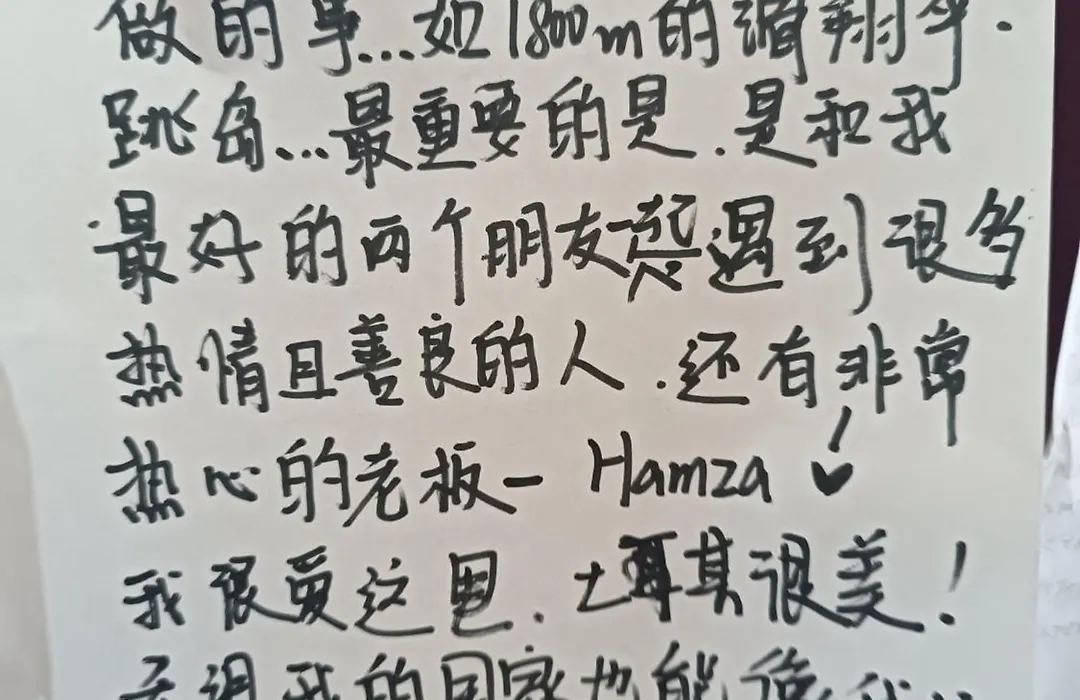 做的事...如1800m的滑翔伞.
跳岛...最重要的是.是和我
最好的两个朋友一起遇到很多
热情且善良的人.还有非常
热心的老板- Hamza
我很爱这里.土耳其很美!
我的国家也能